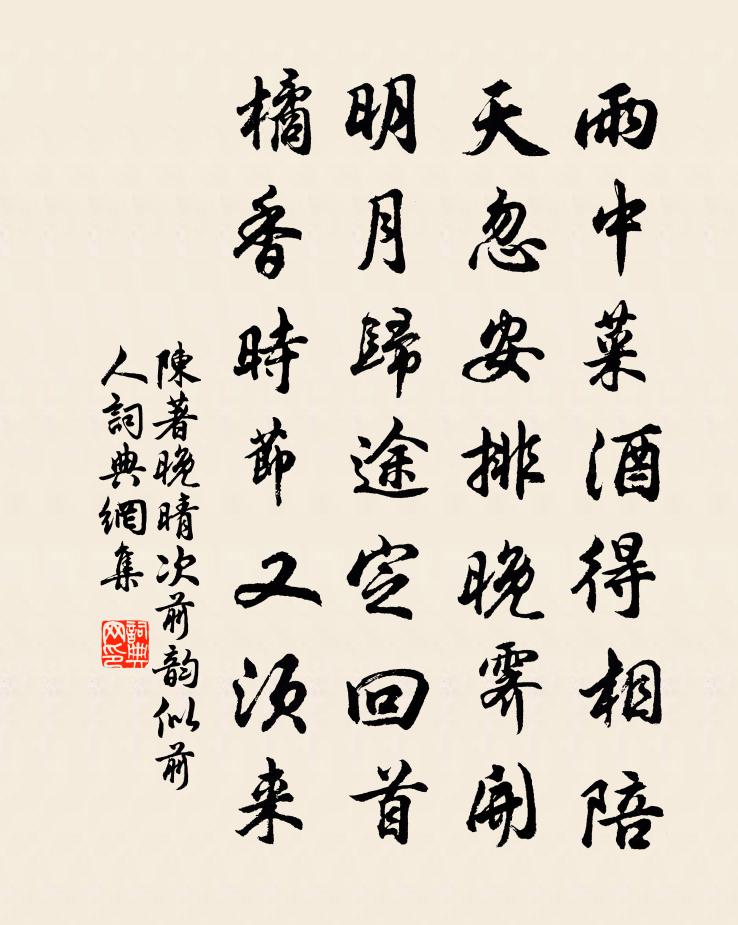 雨中菜酒得相陪
天忽安排晚霽開
明月歸途定回首
橘香時節又須来
陳著晚晴次前韵似前
人詞典網集
詞典
网印